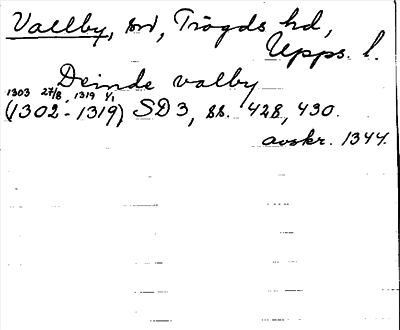 Vallby, sn, Trögds hd,
Upps. l.
Deinde valby
1303 27/8, 1319 4/1
(1302-1319) SD3, ss. 428, 430.
avskr. 1344.